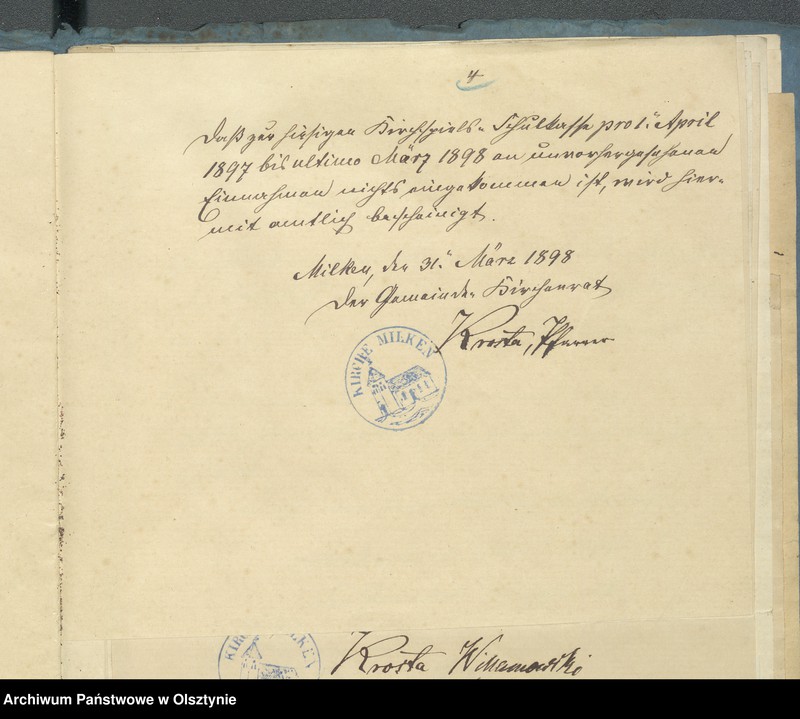 4
Daß zur hiesigen Kirchspiels-Schulkasse pro 1. April
1897 bis ultimo März 1898 an unvorhergesehenen
Einnahmen nichts eingekommen ist, wird hier-
mit amtlich bescheinigt.
Milken, den 31. März 1898
Der Gemeinde-Kirchenrat
Krosta, Pfarrer
KIRCHE MILKEN
Krosta
Archiwum Państwowe w Olsztynie